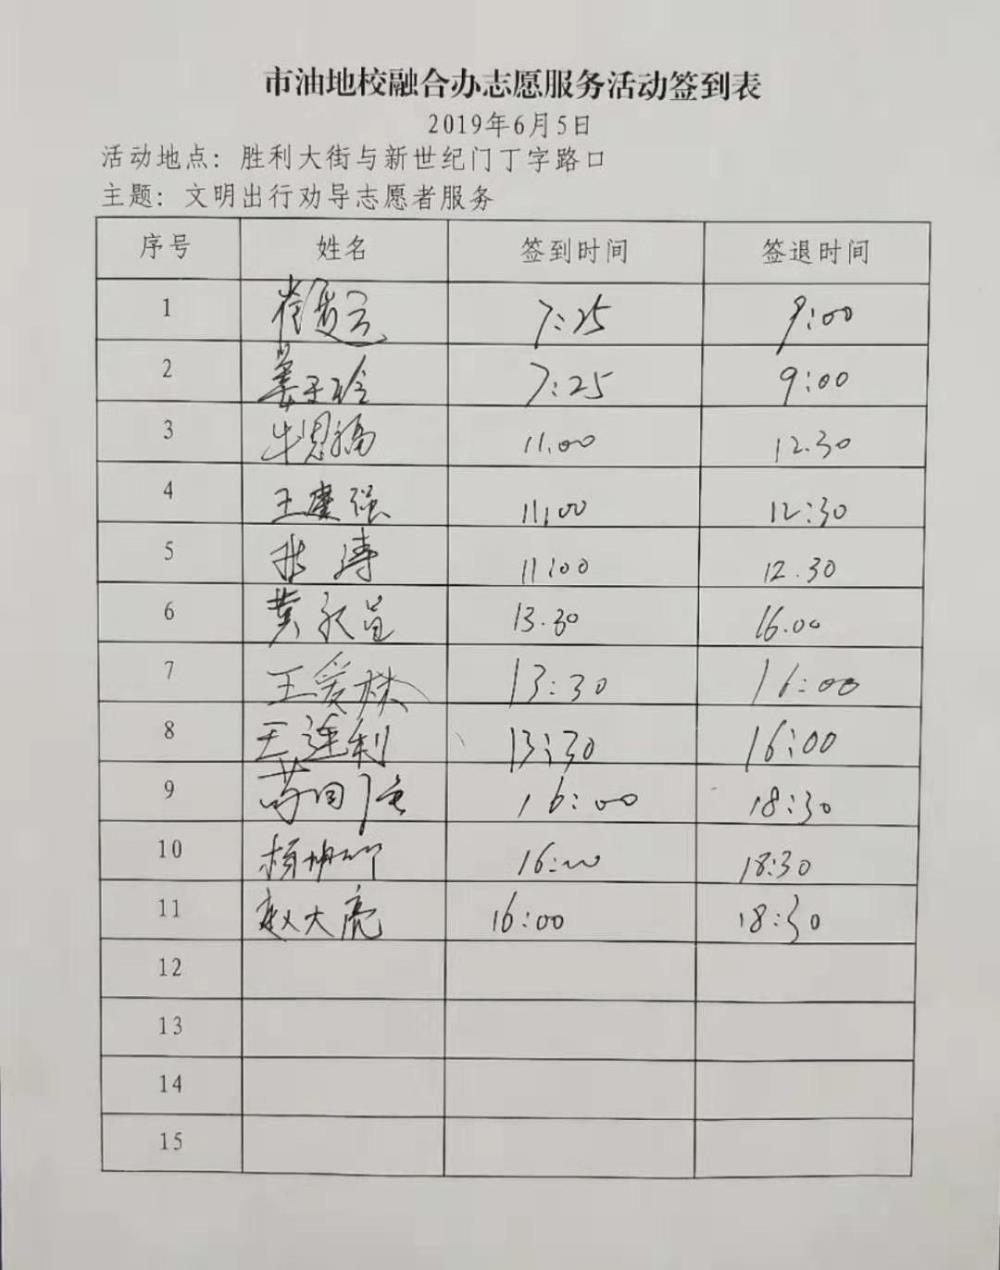 市油地校融合办志愿服务活动签到表
2019年6月5日
活动地点：胜利大街与新世纪门丁字路口
主题：文明出行劝导志愿者服务
序号 姓名 签到时间 签退时间
1 7:25 9:00
2 姜玉玲 7:25 9:00
3 牛恩福 11.00 12.30
4 王庆强 11:00 12:30
5 张涛 11:00 12.30
6 黄 13.30 16.00
7 王爱林 13:30 16:00
8 王连利 13:30 16:00
9 16:00 18:30
10 杨 16:00 18:30
11 赵大亮 16:00 18:30
12
13
14
15